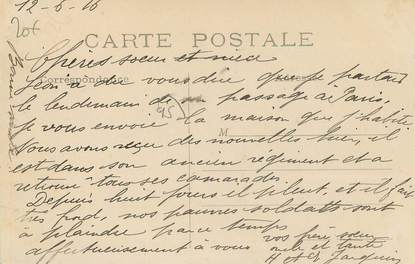 12-6-16
20f
CARTE POSTALE
Correspondance
Chères sœur et nièce
Léon a dû vous dire que je partais
le lendemain de mon passage à Paris,
95
je vous envoie la maison que j'habite
M
Nous avons reçu des nouvelles hier, il
est dans son ancien régiment et a
retrouvé tous ses camarades.
Depuis huit jours il pleut, et il fait
très froid, nos pauvres soldats sont
à plaindre par ce temps
affectueusement à vous
vos frère sœur
oncle et tante
H et